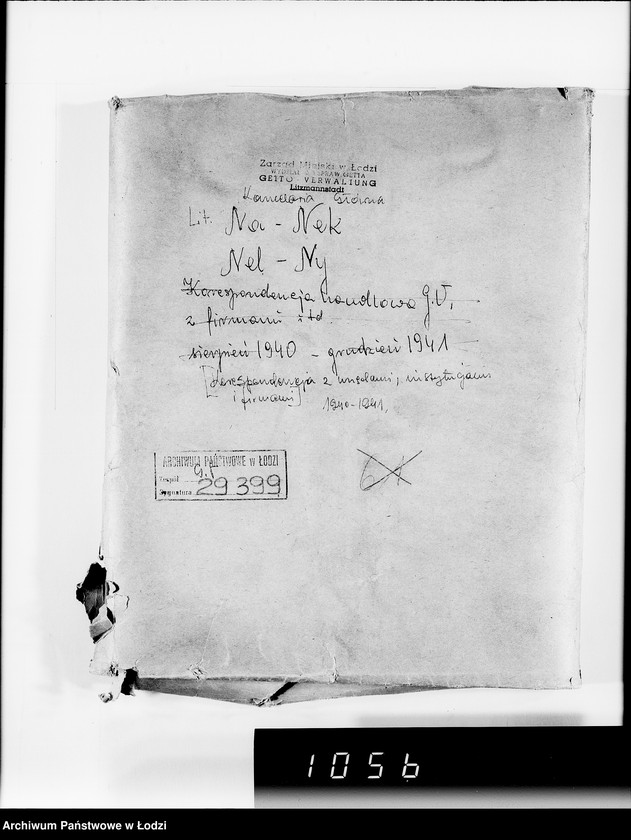 Zarząd Miejski w Łodzi
WYDZIAŁ SPRAW GETTA
GETTO VERWALIUNG
Litzmannstadt
Kancelaria Główna
Lit. Na - Nek
Nel - Ny
Korespondencja handlowa G.V.
z firmami itd
sierpień 1940 - grudzień 1941
[Korespondencja z urzędami, instytucjami
i firmami] 1940-1941,
ARCHIWUM PAŃSTWOWE w ŁODZI
Zespół
Sygnatura 29 399
1056
Archiwum Państwowe w Łodzi